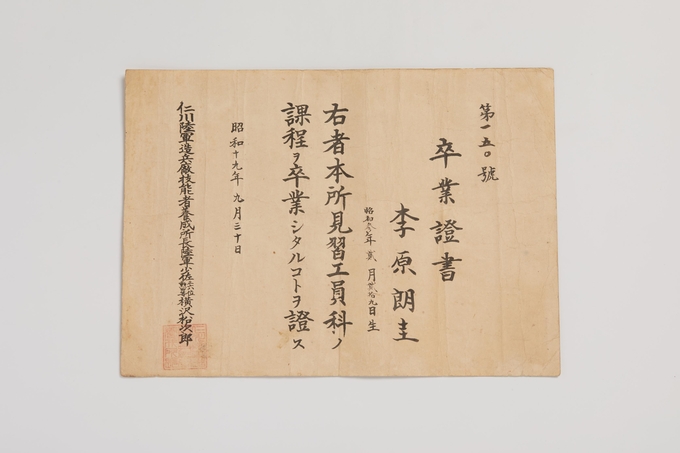 第一五〇號
卒業證書
李原朗圭
昭和 年貳月貳拾九日生
右者本所見習工員科ノ
課程ヲ卒業シタルコトヲ證ス
昭和十九年九月三十日
仁川陸軍造兵廠技能者養成所長陸軍少佐 横沢松次郎